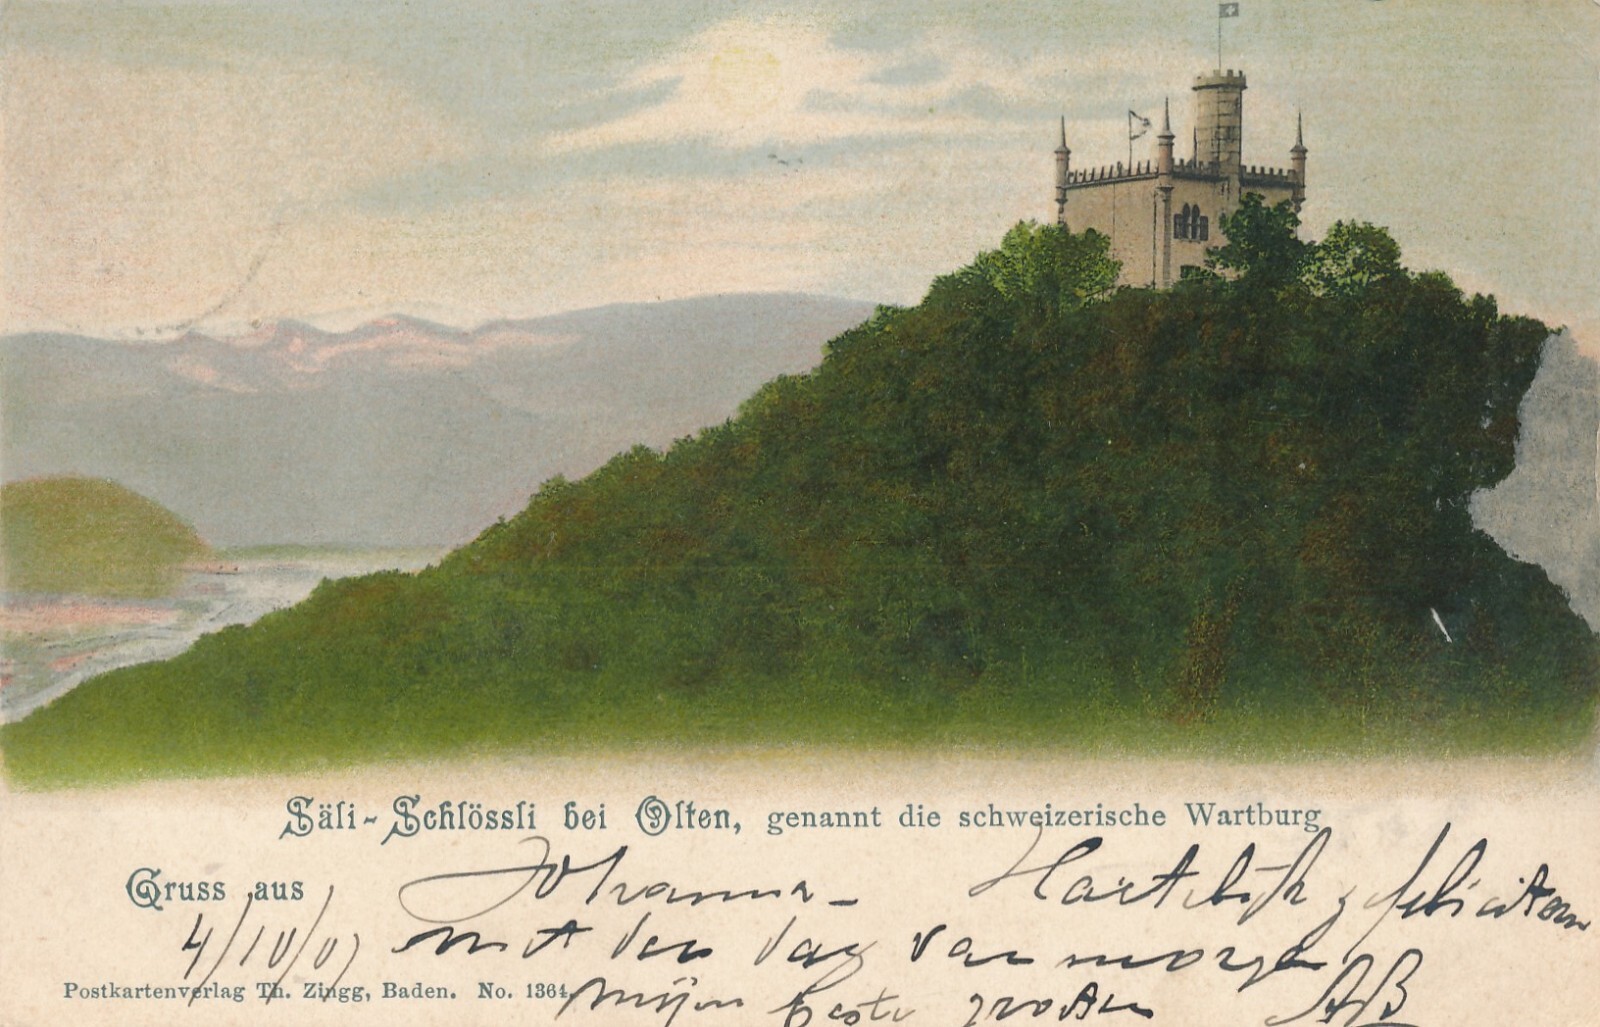 Säli-Schlössli bei Olten, genannt die schweizerische Wartburg
Gruss aus
Johanna - Hartelijk gefeliciteer
4/10/07 met den dag van morgen
Postkartenverlag Th. Zingg, Baden. No. 1364.
Mijn beste groeten AB